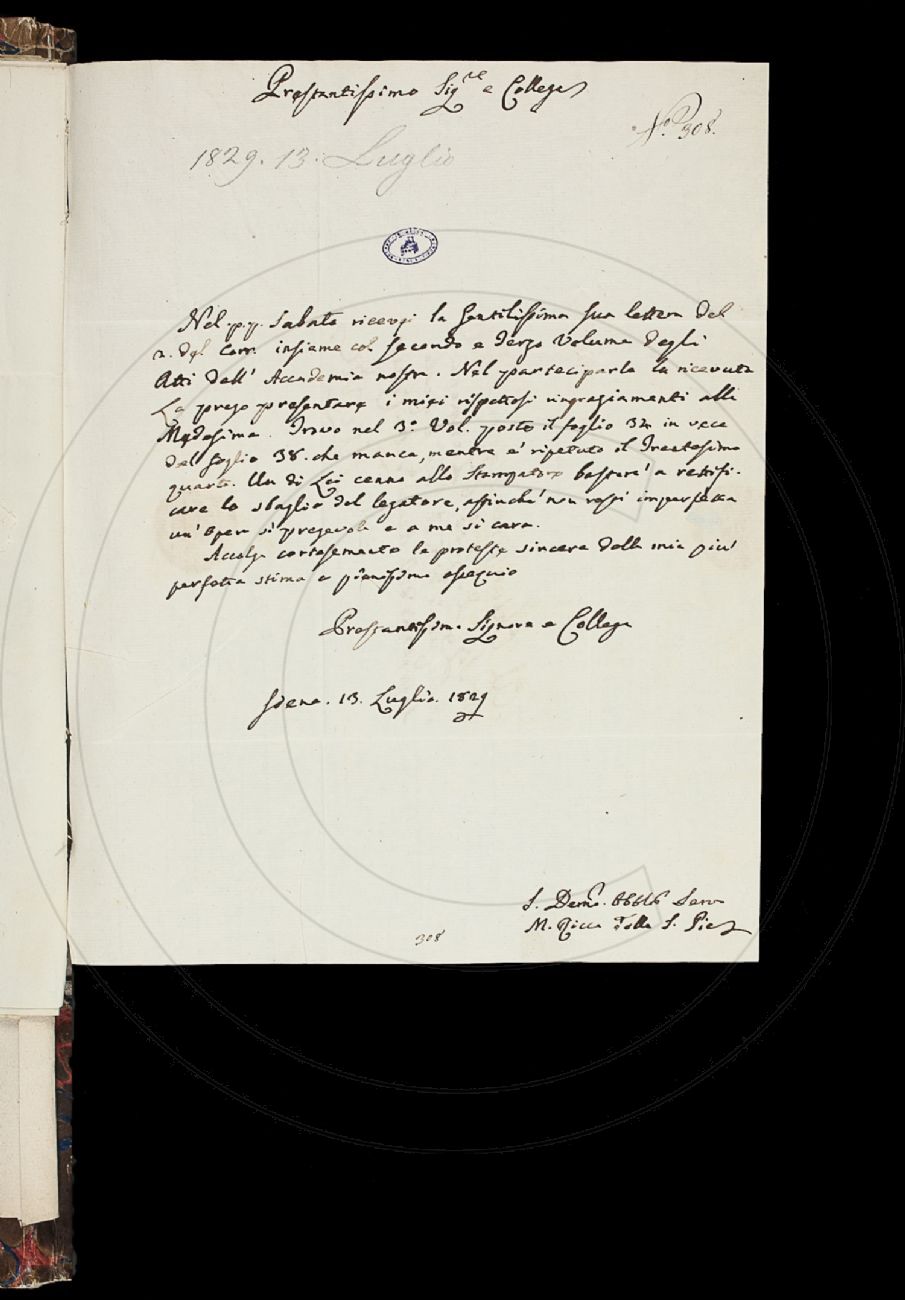 Prestantissimo Sig.re e Collega
N.o 308.
1829. 13. Luglio
Nel p.p. Sabato ricevei la Gentilissima sua lettera del
2. del Corr. insieme col secondo e Terzo Volume degli
Atti dell' Accademia nostra. Nel parteciparle la ricevuta
La prego presentare i miei rispettosi ringraziamenti alla
Medesima. Trovo nel 3.o Vol. posto il foglio 34 in vece
del foglio 38. che manca, mentre e' ripetuto il Trentesimo
quarto. Un di Lei cenno allo Stampatore bastera' a rettifi-
care lo sbaglio del legatore, affinche' non resti imperfetta
un' opera si' pregevole e a me si cara.
Accolga cortesemente le proteste sincere della mia piu'
perfetta stima e pienissimo ossequio
Prestantissim. Signore e Collega
Siena. 13. Luglio. 1829
S. Devmo. Servo
M. Ricca delle S. Pie
308